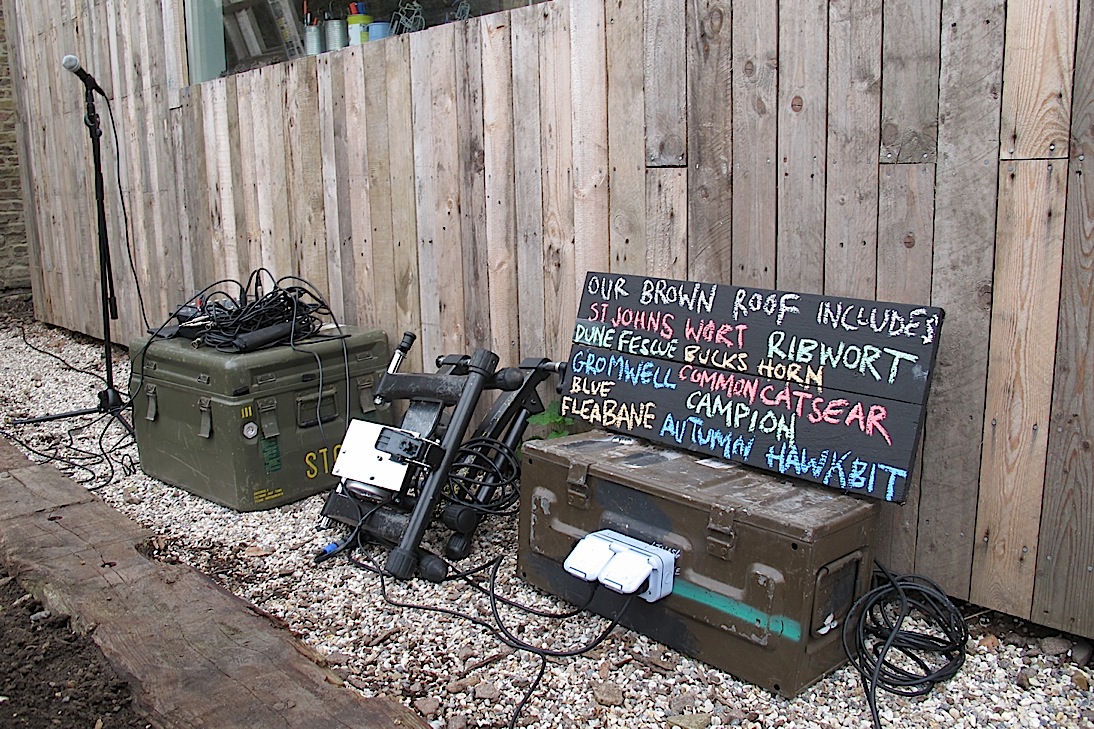 OUR BROWN ROOF INCLUDES
ST JOHNS WORT RIBWORT
DUNE FESCUE BUCKS HORN
GROMWELL COMMON CATSEAR
BLUE FLEABANE CAMPION
AUTUMN HAWKBIT